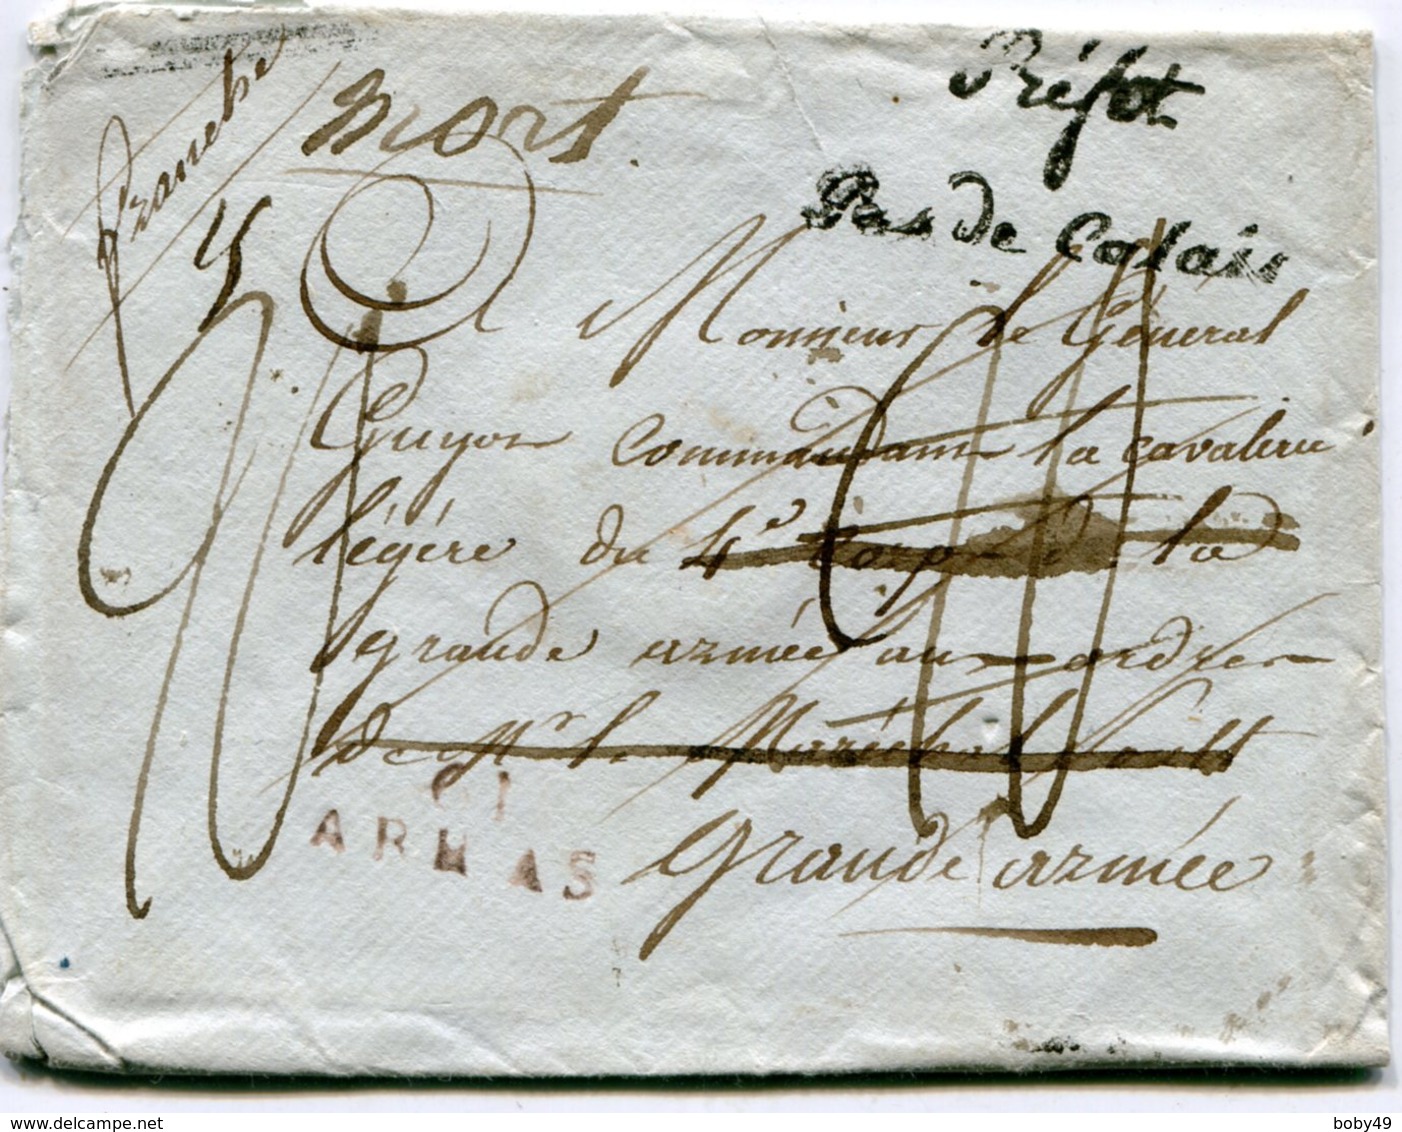 Préfet
Pas de Calais
franche
mort.
Monsieur le Général
Guyon commandant la cavalerie
légère du 4e Corps de la
grande armée aux ordres
de Mr. le Maréchal Soult
61
ARRAS
grande armée
delcampe.net
boby49